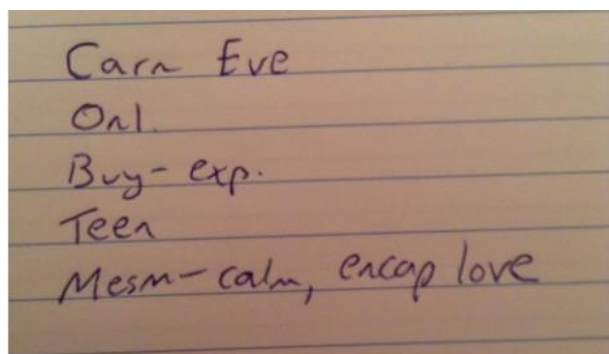 Carn Eve
Onl.
Buy- exp.
Teen
Mesm- calm, encap love